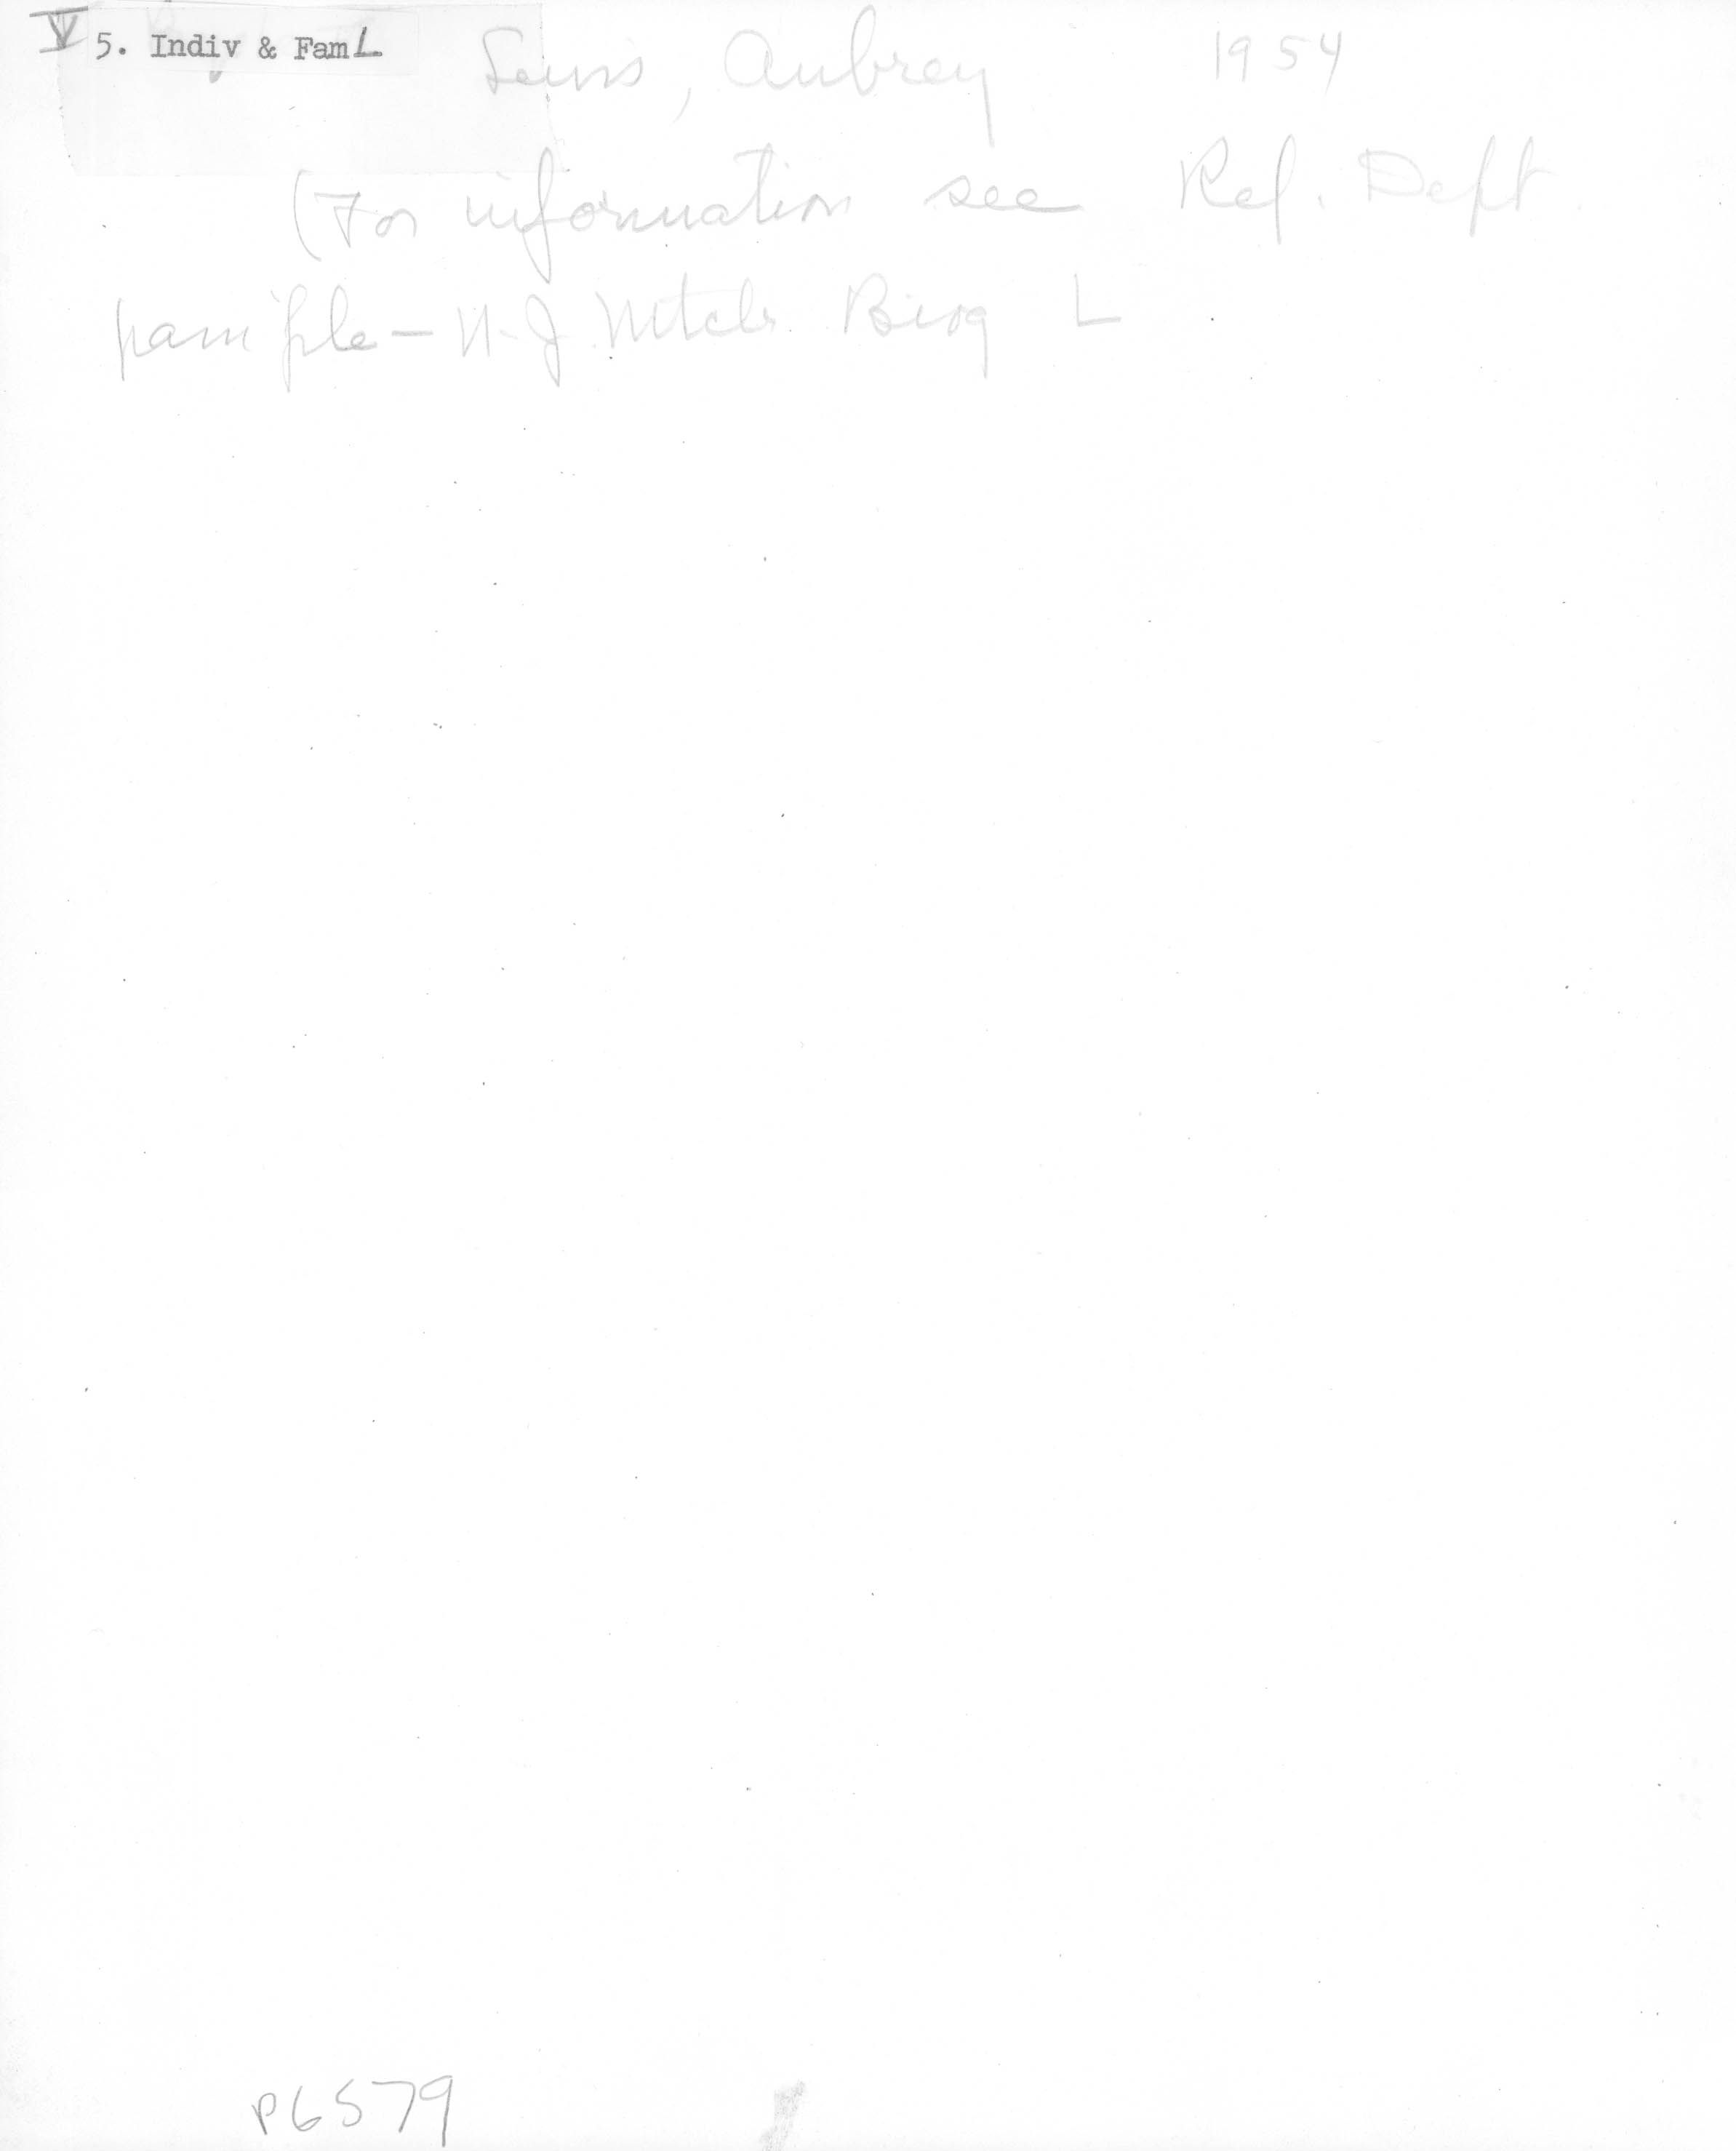 V 5. Indiv & Fam L Lewis, Aubrey 1954
(For information see Ref. Dept.
pam file - N.J. Mtclr. Biog L
P6579